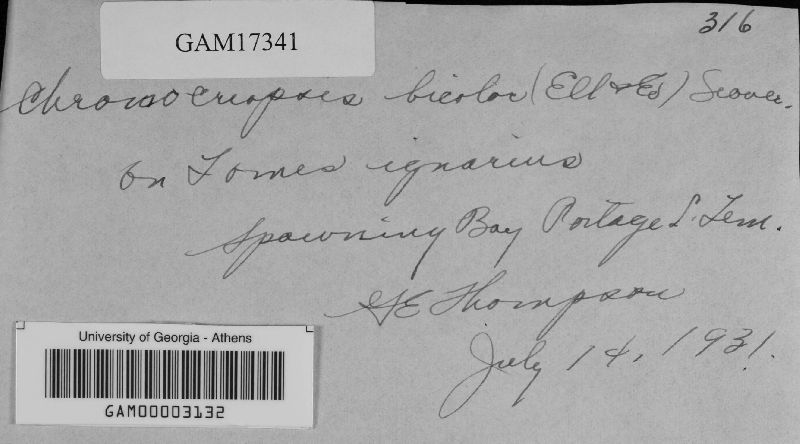 316
GAM17341
Chromocreopsis bicolor (Ell & Ev) Seaver.
on Fomes igniarius
Spawning Bay Portage L. Tem.
GE Thompson
July 14, 1931.
University of Georgia - Athens
GAM00003132